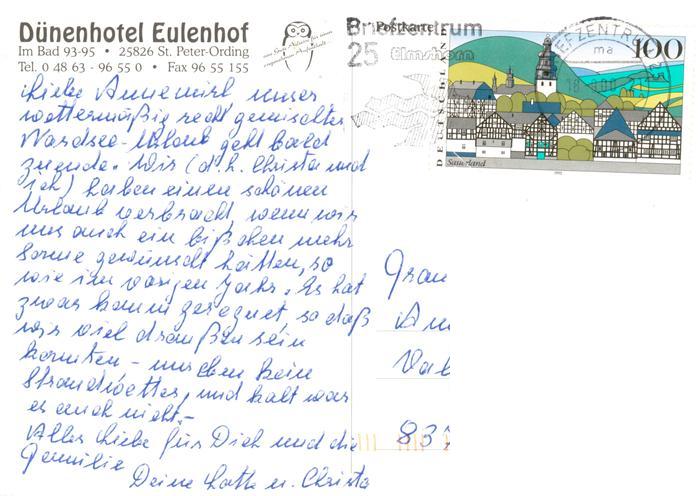 Dünenhotel Eulenhof
Im Bad 93-95 • 25826 St. Peter-Ording
Tel. 0 48 63 - 96 55 0 • Fax 96 55 155
Postkarte
Briefzentrum
25 Elmshorn
BRIEFZENTRUM
ma
100
DEUTSCHLAND
Sauerland
Liebe Annemirl, unser
wettermäßig recht gemischter
Nordsee-Urlaub geht bald
zuende. Wir (d.h. Christa und
ich) haben einen schönen
Urlaub verbracht, wenn wir
uns auch ein bißchen mehr
Sonne gewünscht hätten, so
wie im vorigen Jahr. Es hat
zwar kaum geregnet, so daß
wir viel draußen sein
konnten - nur eben kein
Strandwetter, und kalt war
es auch nicht.-
Alles Liebe für Dich und die
Familie
Deine Lotte u. Christa